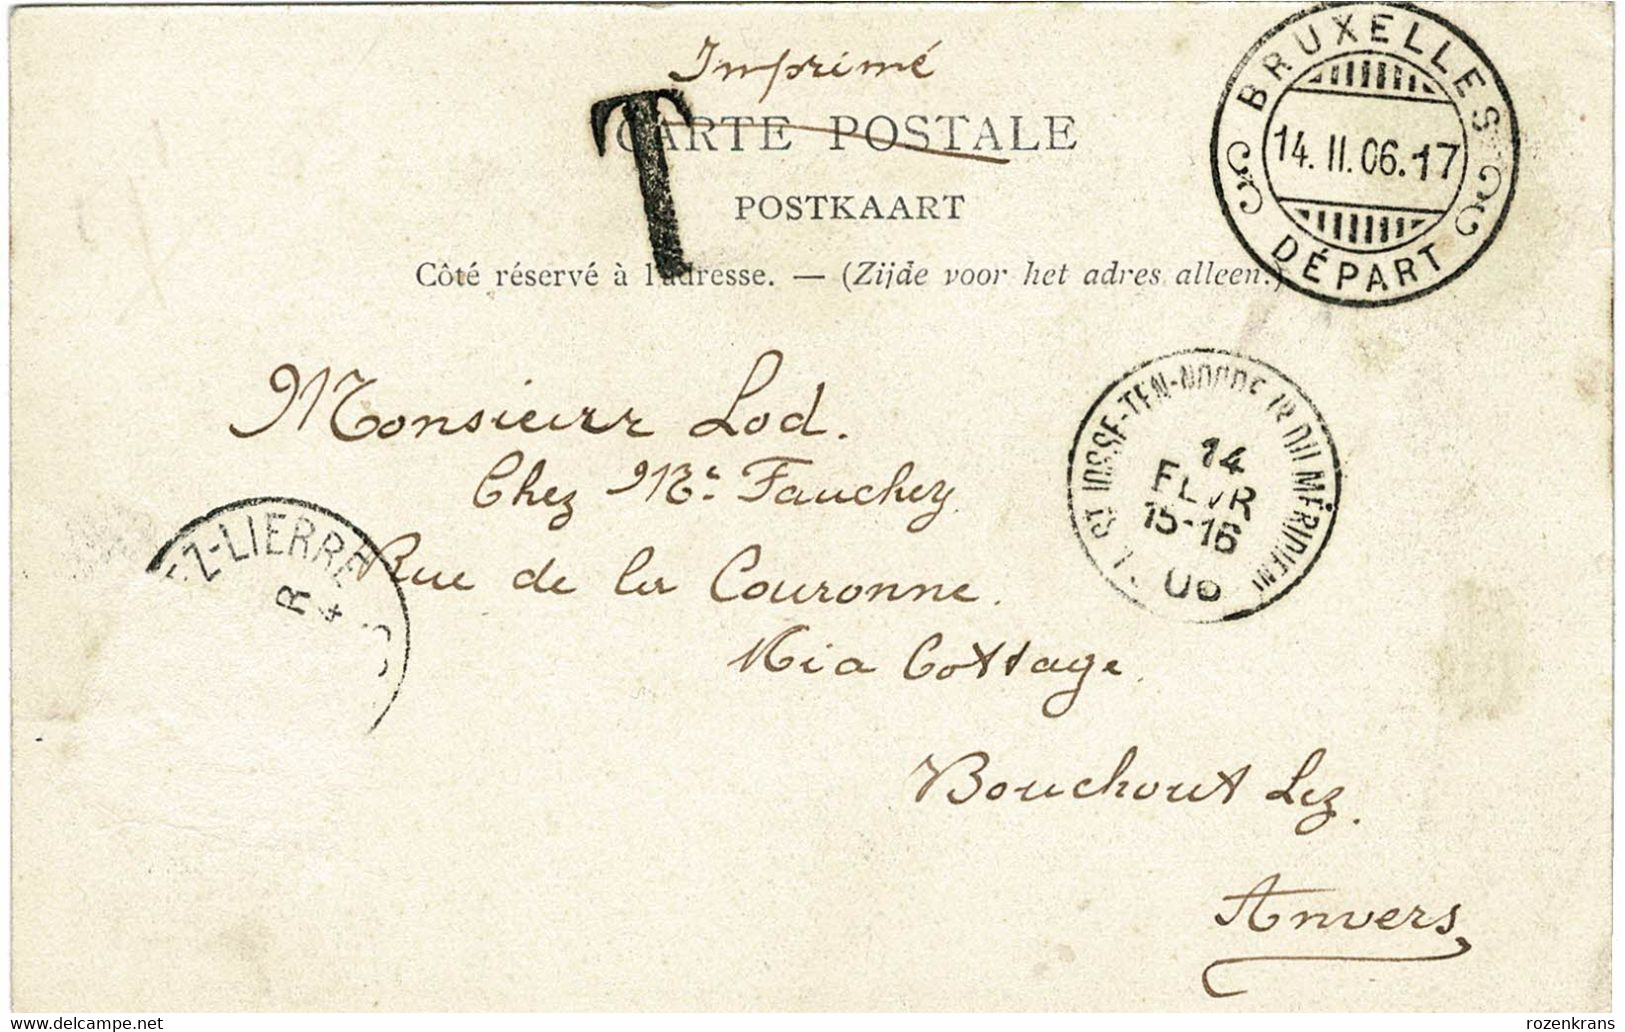 Imprimé
CARTE POSTALE
T
POSTKAART
Côté réservé à l'adresse. — (Zijde voor het adres alleen.)
BRUXELLES
14. II. 06. 17
DÉPART
Monsieur Lod.
Chez Mr. Fauchey
Rue de la Couronne.
Mia Cottage
Bouchout Lez.
Anvers
ST JOSSE-TEN-NOODE (R DU MÉRIDIEN)
14
FEVR
15-16
06
EZ-LIERRE
R 4
www.delcampe.net
rozenkrans